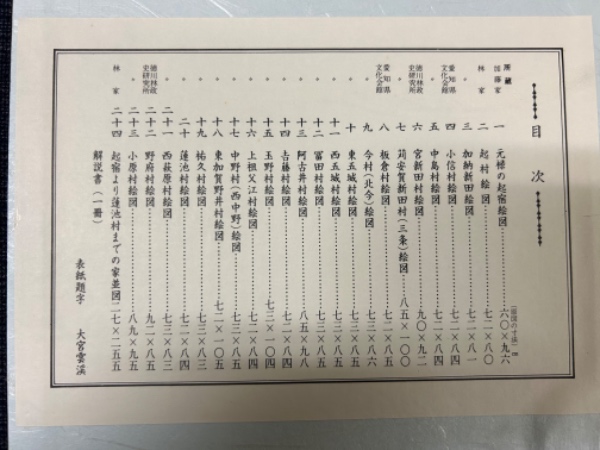 目次
所蔵 (原図の寸法)㎝
加藤家 一 元禄の起宿絵図 六〇×九六
林家 二 起村絵図 七二×八〇
〃 三 加納新田絵図 七二×八一
愛知県文化会館 四 小信村絵図 七二×八四
〃 五 中島村絵図 七二×八四
徳川林政史研究所 六 宮新田村絵図 九〇×九二
〃 七 苅安賀新田村(三条)絵図 八五×一〇〇
愛知県文化会館 八 板倉村絵図 七二×八五
〃 九 今村(北今)絵図 七三×八六
〃 十 東五城村絵図 七三×八五
〃 十一 西五城村絵図 七三×八五
〃 十二 冨田村絵図 七三×八五
〃 十三 阿古井村絵図 八五×九八
〃 十四 吉藤村絵図 七二×八四
〃 十五 玉野村絵図 七三×一〇五
〃 十六 上祖父江村絵図 七二×八四
〃 十七 中野村(西中野)絵図 七三×八五
〃 十八 東加賀野井村絵図 七二×一〇五
〃 十九 祐久村絵図 七三×八三
〃 二十 蓮池村絵図 七二×八四
〃 二十一 西萩原村絵図 七三×八三
徳川林政史研究所 二十二 野府村絵図 九二×八五
〃 二十三 小原村絵図 八九×九五
林家 二十四 起宿より蓮池村までの家並図 二七×二五五
解説書(一冊)
表紙題字 大宮雲渓